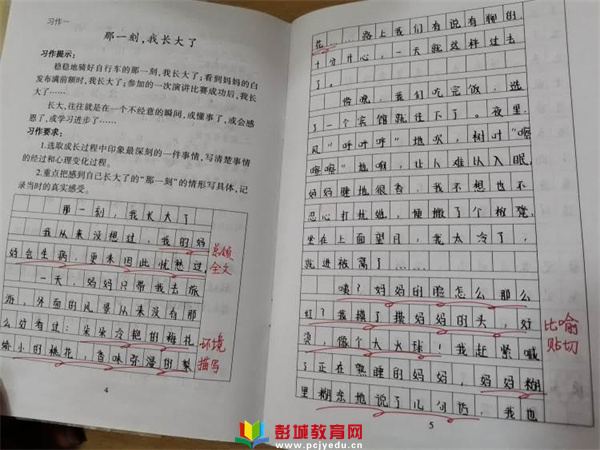 习作一
那一刻，我长大了
习作提示：
稳稳地骑好自行车的那一刻，我长大了；看到妈妈的白
发布满前额时，我长大了；参加的一次演讲比赛成功后，我长
大了……
长大，往往就是在一个不经意的瞬间，或懂事了，或会感
恩了，或学习进步了……
习作要求：
1.选取成长过程中印象最深刻的一件事情，写清楚事情
的经过和心理变化过程。
2.重点把感到自己长大了的“那一刻”的情形写具体，记
录当时的真实感受。
那一刻，我长大了
我从来没想过，我的妈
妈会生病，更未因此忧愁过，
一天，妈妈只带我去旅
游，外面的风景从来没有那
么好看过：朵朵冷艳的梅花
娇小的桃花，香味弥漫的梨
总领
全文
环境
描写
4
花……路上我们有说有聊的，
十分开心，一天就这样过去
了。
傍晚，我们吃完饭，选
了一个宾馆就住下了。夜里，
风“呼呼呼”地吹，树叶“嚓
嚓嚓”地响，让人难以入眠，
妈妈睡地很香，我不想也不
忍心打扰她，便搬了个板凳，
坐在上面望月，我太冷了，
就进被窝了……
咦？妈妈的脸怎么那么
红？我摸了摸妈妈的头，好
烫，像个大火球！我赶紧喊
了正在熟睡的妈妈，妈妈糊
里糊涂地说了几句话，我也
比喻
贴切
5
彭城教育网
www.pcjyedu.cn